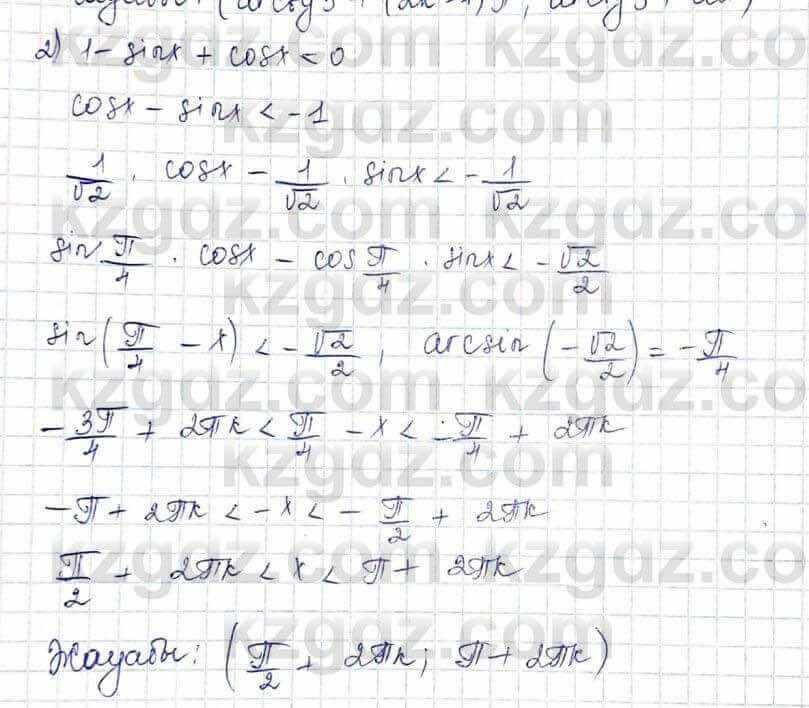 2) 1 - sinx + cosx < 0
cosx - sinx < -1
1/√2 · cosx - 1/√2 · sinx < - 1/√2
sin π/4 · cosx - cos π/4 · sinx < - √2/2
sin(π/4 - x) < - √2/2, arcsin(-√2/2) = - π/4
- 3π/4 + 2πk < π/4 - x < - π/4 + 2πk
-π + 2πk < -x < - π/2 + 2πk
π/2 + 2πk < x < π + 2πk
Жауабы: (π/2 + 2πk; π + 2πk)
kzgdz.com